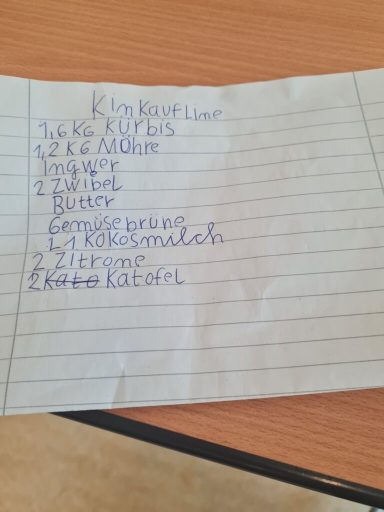 Kinkaufline
1,6 KG Kürbis
1,2 KG MÖhre
Ingwer
2 ZWibel
Butter
Gemüsebrüne
1 1 Kokosmilch
2 ZItrome
2 Kato Katofel